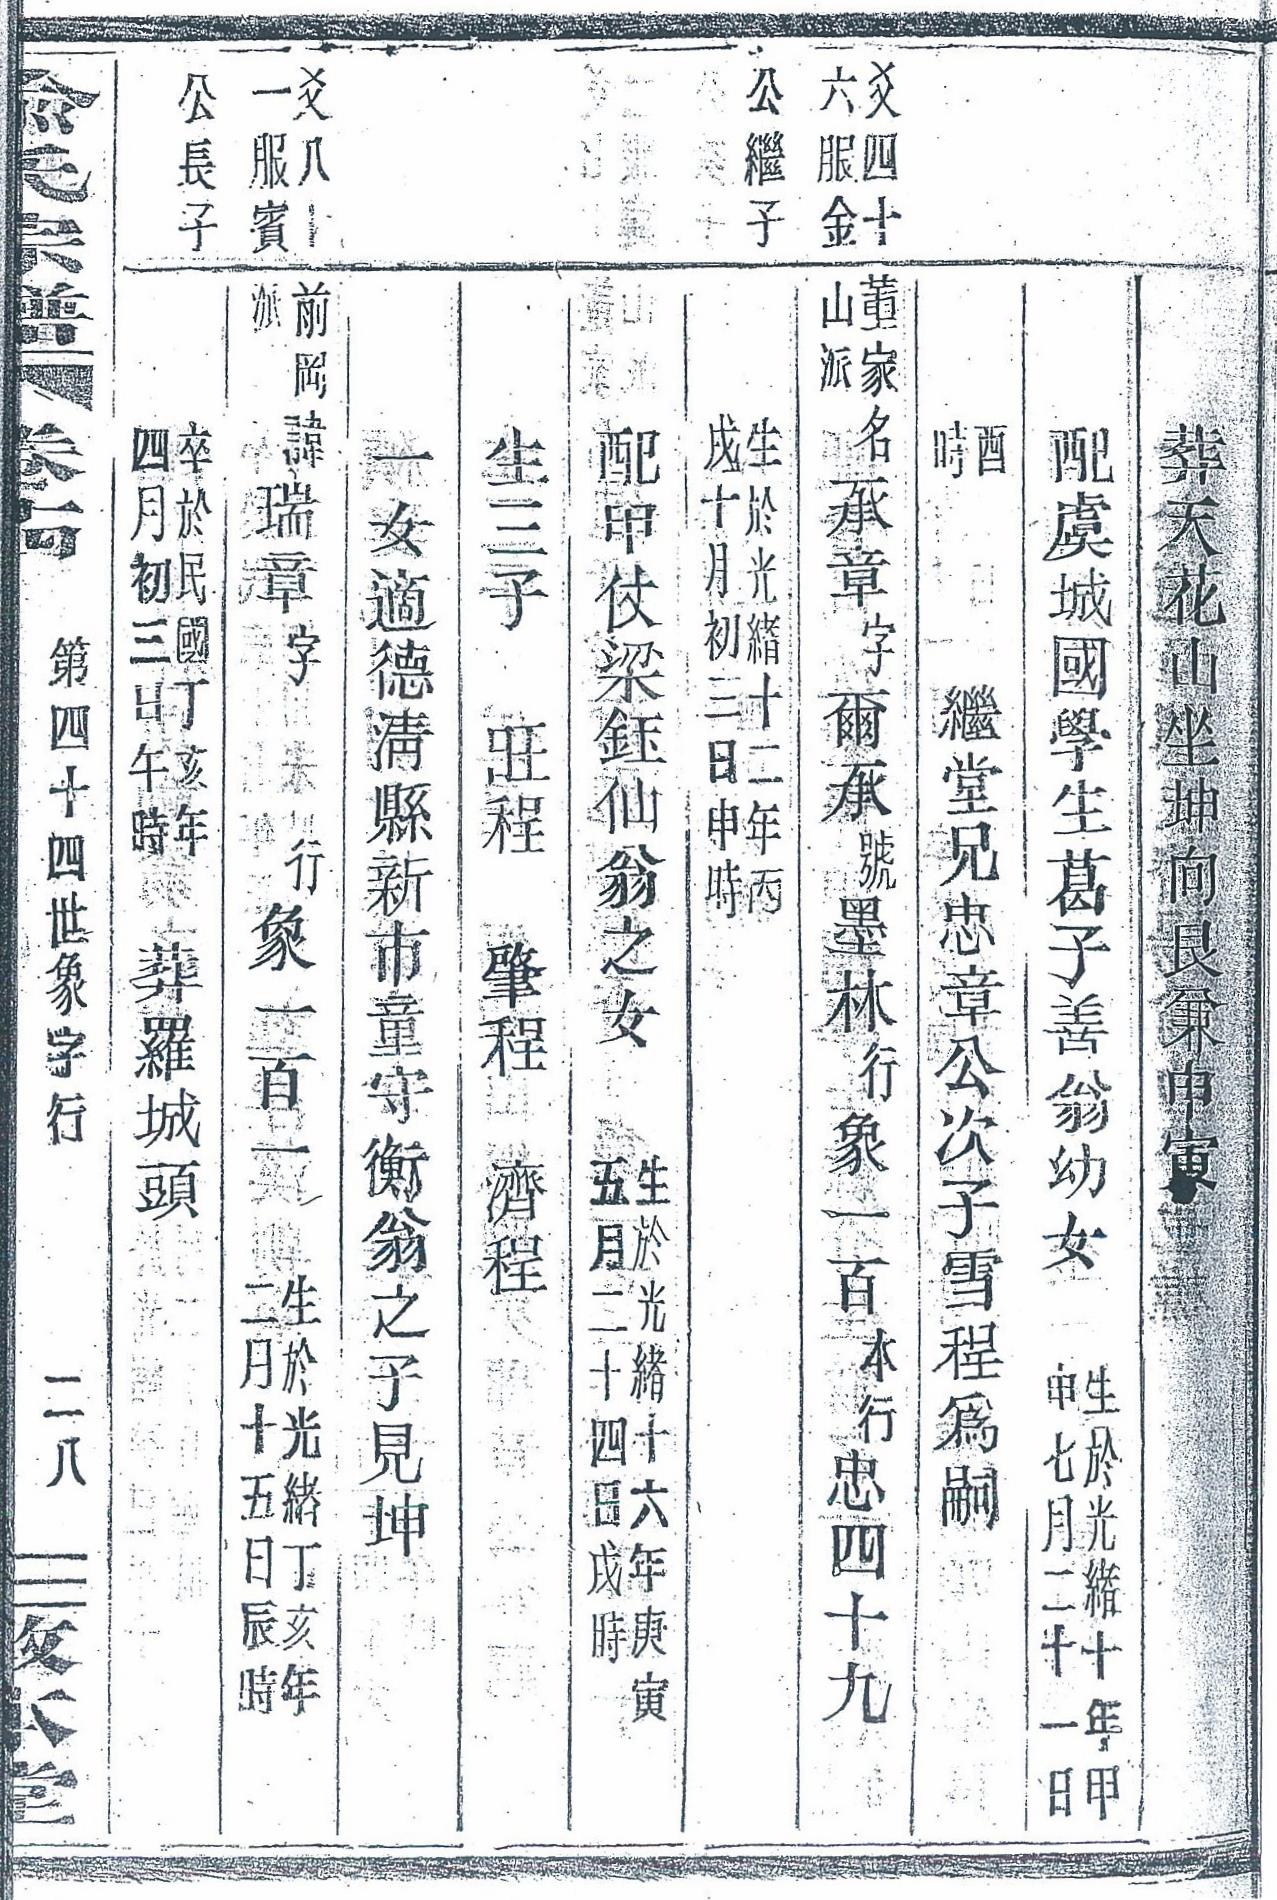 葬天花山坐坤向艮兼申寅
配虞城國學生葛子善翁幼女 生於光緒十年甲
申七月二十一日
酉
時 繼堂兄忠章公次子雪程爲嗣
爻四十
六服金
董家
山派 名承章字爾承號墨林行象一百本行忠四十九
公繼子
生於光緒十二年丙
戌十月初三日申時
配甲仗梁鈺仙翁之女 生於光緒十六年庚寅
五月二十四日戌時
生三子 旺程 肇程 濟程
一女適德清縣新市童守衡翁之子見坤
爻八十
一服賓
前岡
派 諱瑞章字 行象一百一 生於光緒丁亥年
二月十五日辰時
公長子
卒於民國丁亥年
四月初三日午時 葬羅城頭
俞氏宗譜 卷 第四十四世象字行 二八 敦本堂